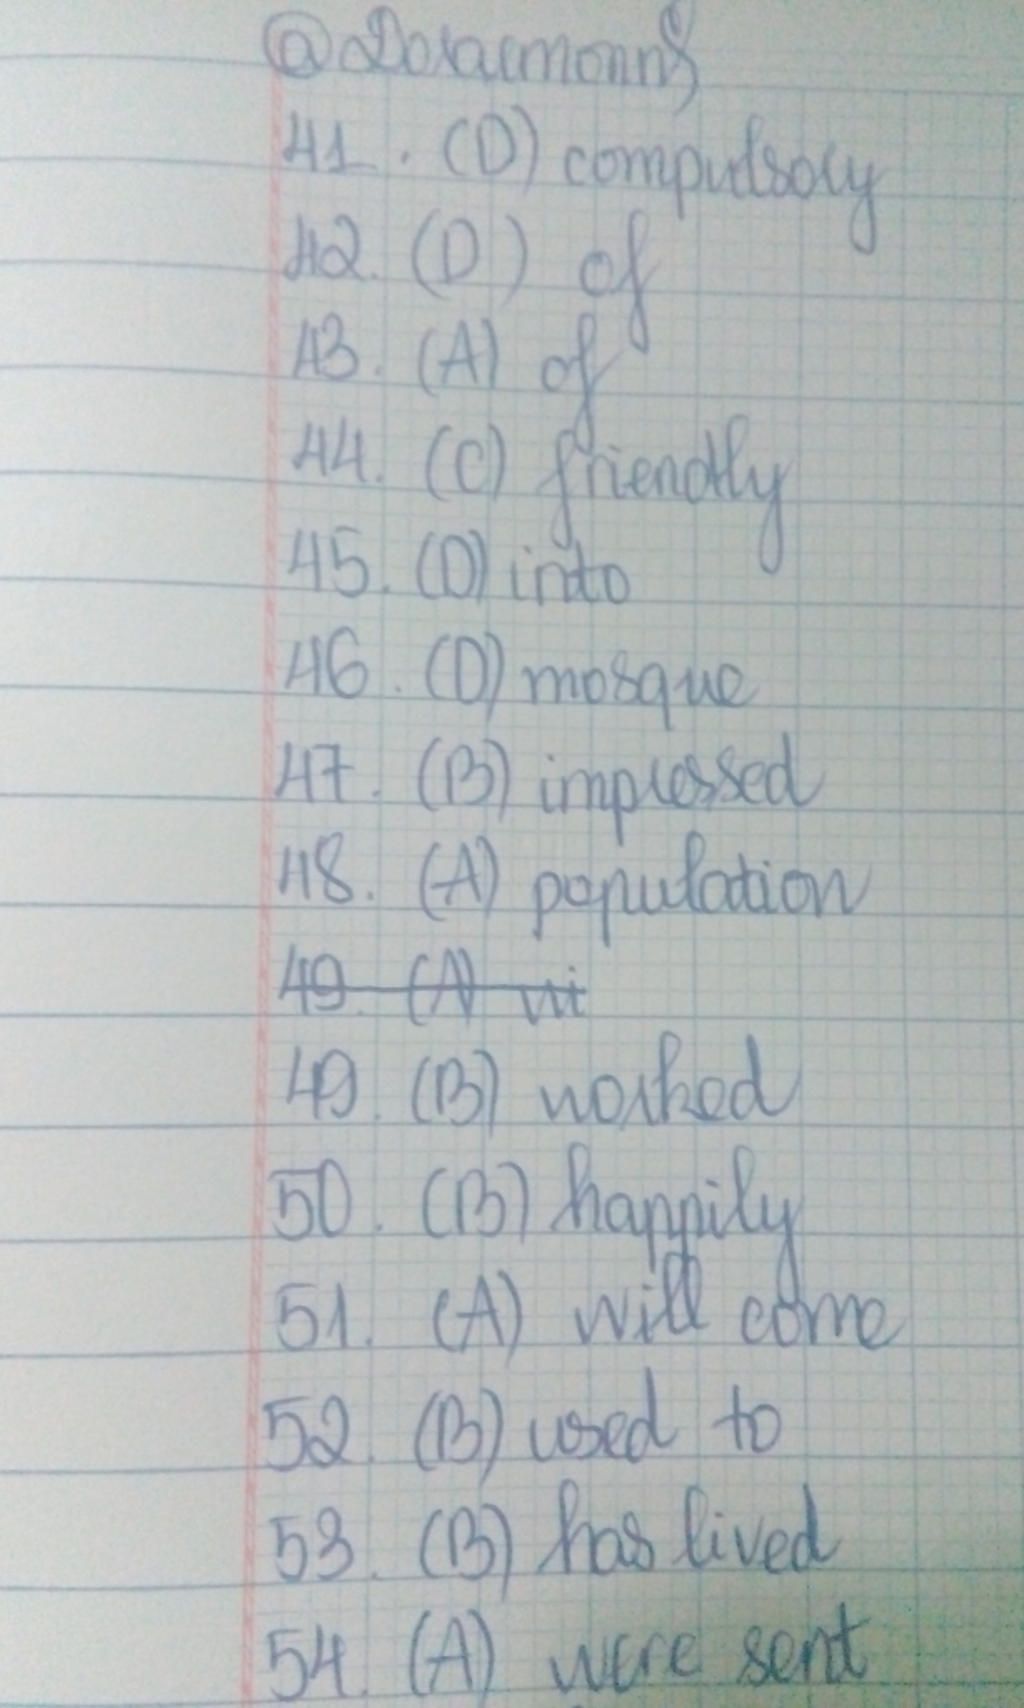 @Doraemonn
41. (D) compulsory
42. (D) of
43. (A) of
44. (C) friendly
45. (D) into
46. (D) mosque
47. (B) impressed
48. (A) population
49. (A) wi
49. (B) worked
50. (B) happily
51. (A) will come
52. (B) used to
53. (B) has lived
54. (A) were sent